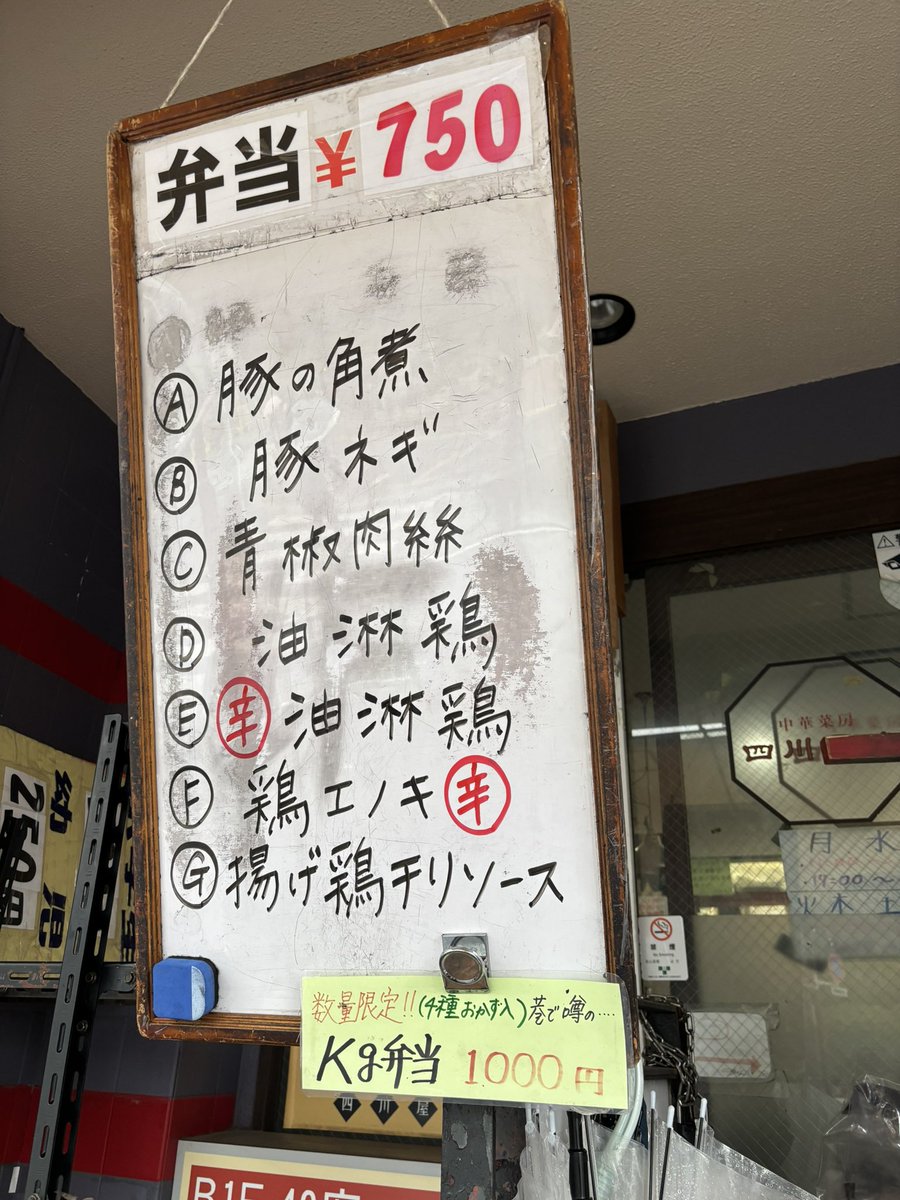 弁当¥750
Ⓐ 豚の角煮
Ⓑ 豚ネギ
Ⓒ 青椒肉絲
Ⓓ 油淋鶏
Ⓔ 辛 油淋鶏
Ⓕ 鶏エノキ 辛
Ⓖ 揚げ鶏チリソース
数量限定!!(4種おかず入)巷で噂の....
Kg弁当 1000円
中華菜房
四川
月 水
火 木 土
禁煙
No Smoking
幼児
250円
四川屋